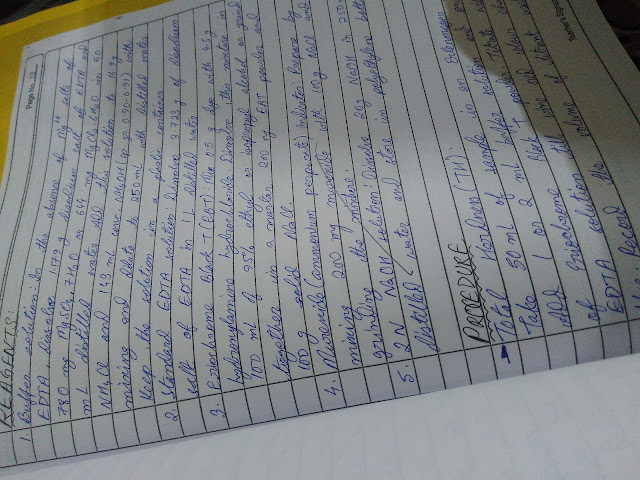 Page No. 
REAGENTS:
1. Buffer solution: In the absence of Mg++ salts of
EDTA, dissolve 1.179 g disodium salt of EDTA and
780 mg MgSO4.7H2O or 644 mg MgCl2.6H2O in 50
ml distilled water. Add this solution to 16.9 g
NH4Cl and 143 ml conc. NH4OH with
mixing and dilute to 250 ml with distilled water
Keep the solution in a plastic container
2. Standard EDTA solution: Dissolve 3.723 g of disodium
salt of EDTA in 1 L distilled water
3. Eriochrome Black T (EBT): Mix 0.5 g dye with 4.5 g
hydroxylamine hydrochloride. Dissolve this mixture in
100 ml of 95% ethyl or isopropyl alcohol or grind
together in a mortar 200 mg EBT powder and
100 g solid NaCl
4. Murexide (ammonium purpurate) Indicator: Prepare by
mixing 200 mg murexide with 100 g NaCl and
grinding the mixture.
5. 2N NaOH solution: Dissolve 20 g NaOH in 250
distilled water and store in polyethylene bottle
PROCEDURE
Total Hardness (TH):
Take 50 ml of sample in an Erlenmeyer
Add 1 or 2 ml buffer solution and
of Eriochrome Black T powder. Titrate with
EDTA solution till wine red clear
Record the volume of titrant used
Teacher's Signature